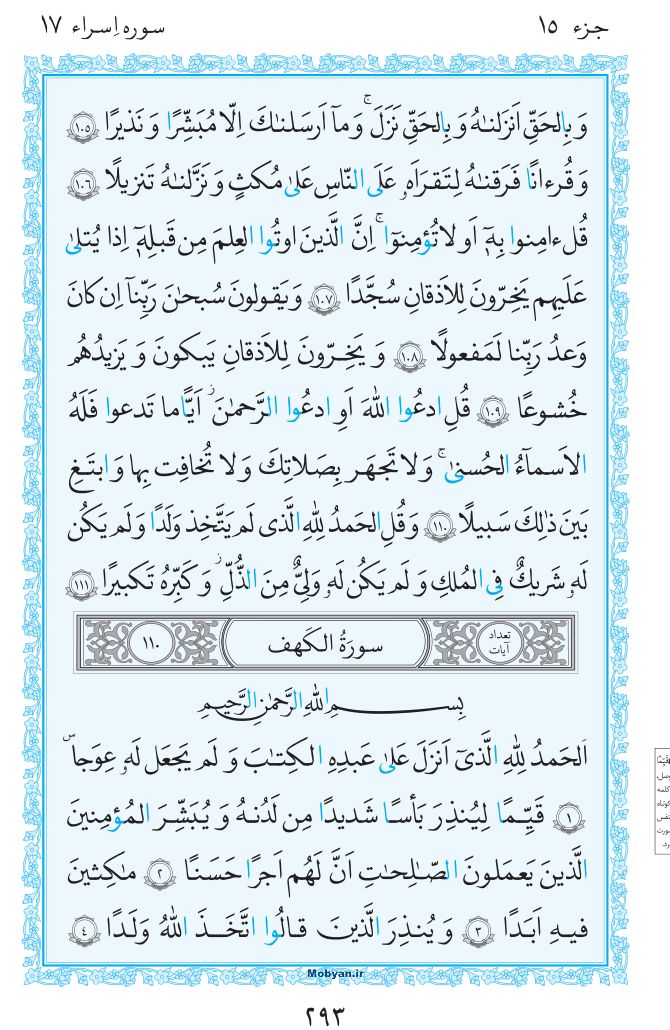 جزء ۱۵
سوره اِسراء ۱۷
وَ بِالحَقِّ اَنزَلنٰهُ وَ بِالحَقِّ نَزَلَ ۚ وَ مآ اَرسَلنٰكَ اِلّا مُبَشِّرًا وَ نَذيرًا ﴿۱۰۵﴾
وَ قُرءانًا فَرَقنٰهُ لِتَقرَاَهٗ عَلَى النّاسِ عَلىٰ مُكثٍ وَ نَزَّلنٰهُ تَنزيلًا ﴿۱۰۶﴾
قُل ءامِنوا بِهٖٓ اَو لا تُؤمِنوٓا ۚ اِنَّ الَّذينَ اوتُوا العِلمَ مِن قَبلِهٖٓ اِذا يُتلىٰ
عَلَيهِم يَخِرّونَ لِلاَذقانِ سُجَّدًا ﴿۱۰۷﴾ وَ يَقولونَ سُبحٰنَ رَبِّنآ اِن كانَ
وَعدُ رَبِّنا لَمَفعولًا ﴿۱۰۸﴾ وَ يَخِرّونَ لِلاَذقانِ يَبكونَ وَ يَزيدُهُم
خُشوعًا ﴿۱۰۹﴾ قُلِ ادعُوا اللّٰهَ اَوِ ادعُوا الرَّحمٰنَ ۖ اَيًّا ما تَدعوا فَلَهُ
الاَسمآءُ الحُسنىٰ ۚ وَ لا تَجهَر بِصَلاتِكَ وَ لا تُخافِت بِها وَ ابتَغِ
بَينَ ذٰلِكَ سَبيلًا ﴿۱۱۰﴾ وَ قُلِ الحَمدُ لِلّٰهِ الَّذى لَم يَتَّخِذ وَلَدًا وَ لَم يَكُن
لَهٗ شَريكٌ فِى المُلكِ وَ لَم يَكُن لَهٗ وَلِىٌّ مِنَ الذُّلِّ ۖ وَ كَبِّرهُ تَكبيرًا ﴿۱۱۱﴾
تعداد
آیات
سورَةُ الكَهف
۱۱۰
بِسمِ اللّٰهِ الرَّحمٰنِ الرَّحيمِ
اَلحَمدُ لِلّٰهِ الَّذىٓ اَنزَلَ عَلىٰ عَبدِهِ الكِتٰبَ وَ لَم يَجعَل لَهٗ عِوَجا ۜ
﴿۱﴾ قَيِّمًا لِيُنذِرَ بَأسًا شَديدًا مِن لَدُنهُ وَ يُبَشِّرَ المُؤمِنينَ
الَّذينَ يَعمَلونَ الصّٰلِحٰتِ اَنَّ لَهُم اَجرًا حَسَنًا ﴿۲﴾ ماكِثينَ
فيهِ اَبَدًا ﴿۳﴾ وَ يُنذِرَ الَّذينَ قالُوا اتَّخَذَ اللّٰهُ وَلَدًا ﴿۴﴾
Mobyan.ir
۲۹۳